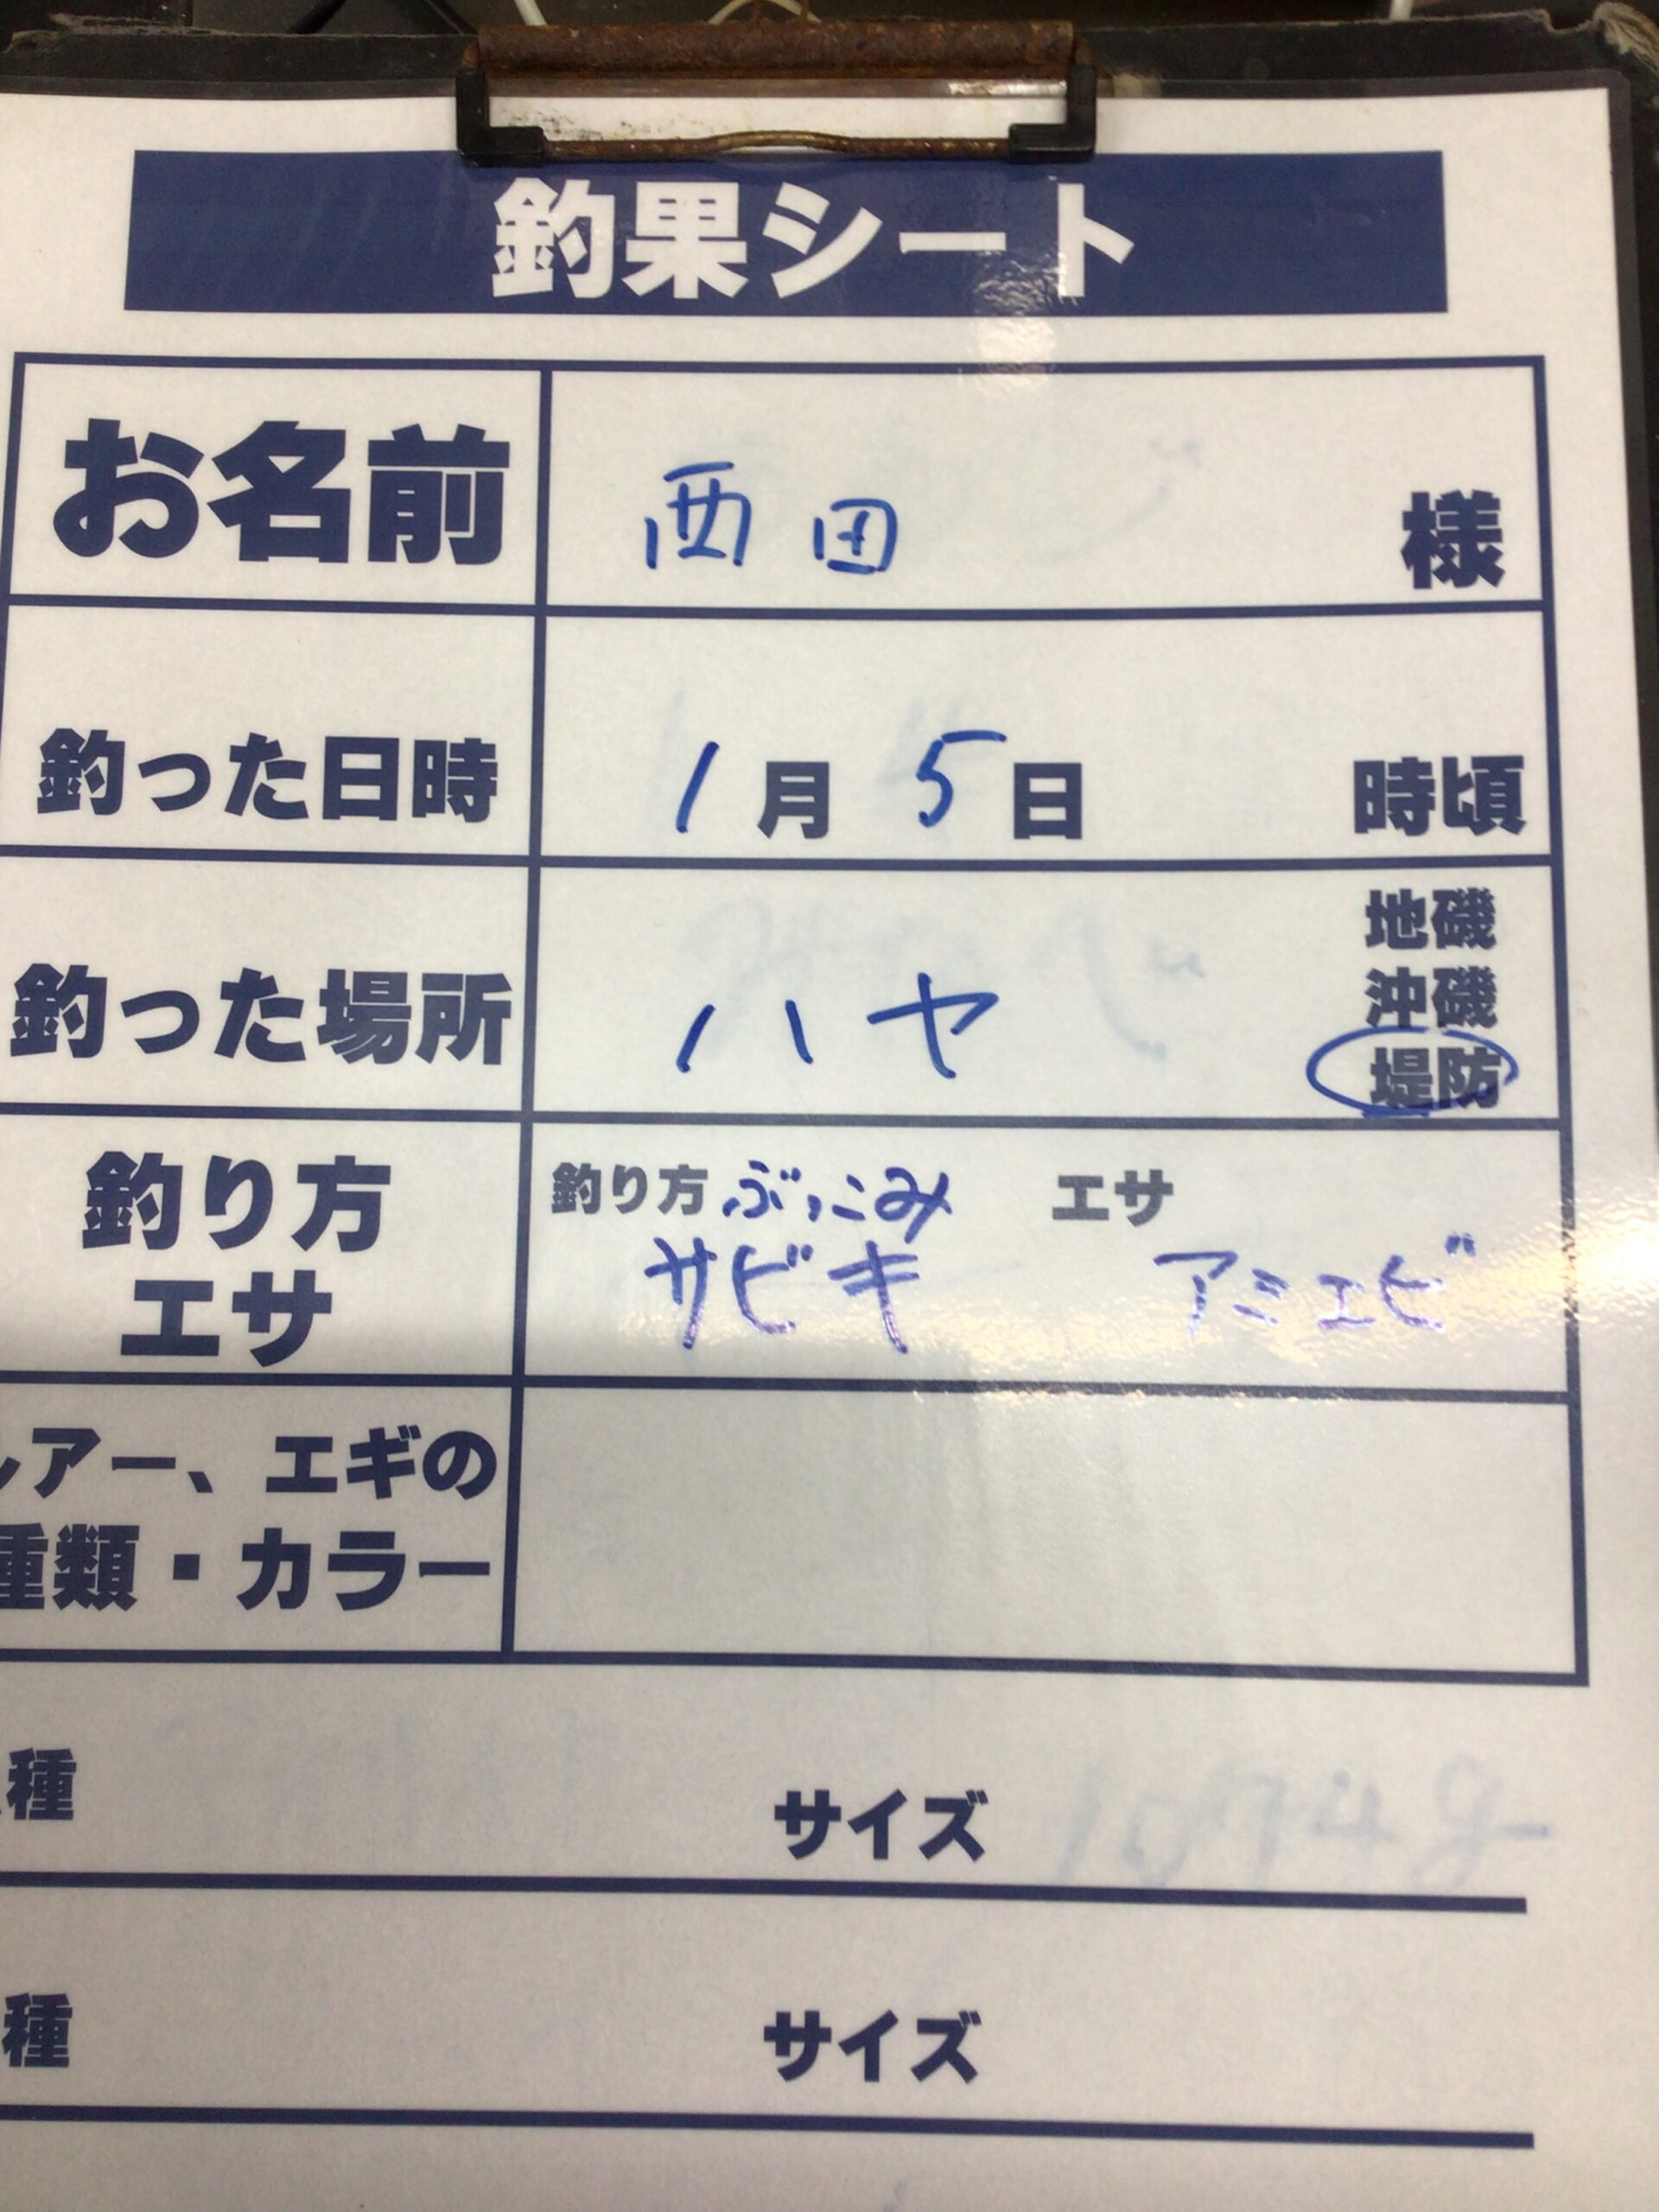 釣果シート
お名前 西田 様
釣った日時 1月5日 時頃
釣った場所 ハヤ 地磯
沖磯
堤防
釣り方 釣り方 ぶっこみ エサ
エサ サビキ アミエビ
ルアー、エギの
種類・カラー
種 サイズ
種 サイズ